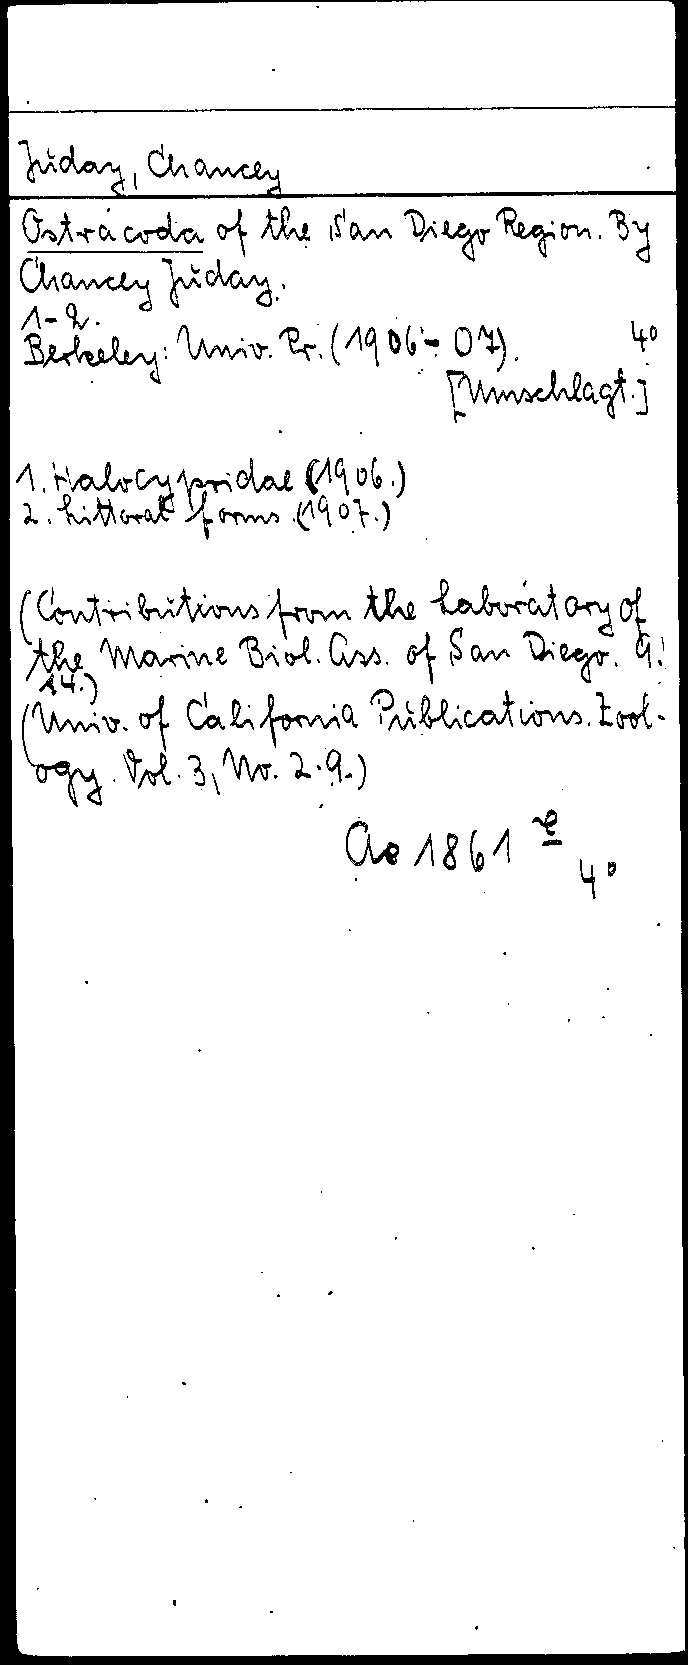 Juday, Chancey
Ostracoda of the San Diego Region. By
Chancey Juday.
1-2.
Berkeley: Univ. Pr. (1906-07). 4°
[Umschlagt.]
1. Halocypridae (1906.)
2. Littoral forms. (1907.)
(Contributions from the Laboratory of
the Marine Biol. Ass. of San Diego. 9.
14.)
(Univ. of California Publications. Zool-
ogy. Vol. 3, No. 2.9.)
Ao 1861
4°